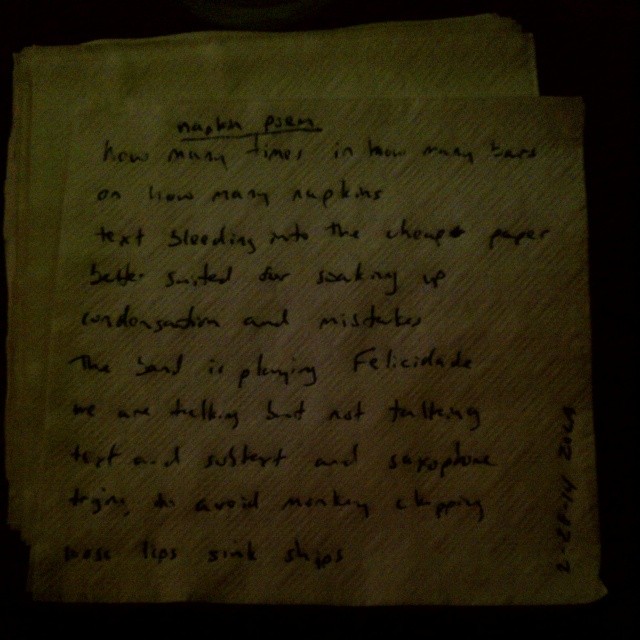 napkin poem
how many times in how many bars
on how many napkins
text bleeding into the cheap paper
better suited for soaking up
condensation and mistakes
The band is playing Felicidade
we are talking but not talking
text and subtext and saxophone
trying to avoid monkey
lips sink ships